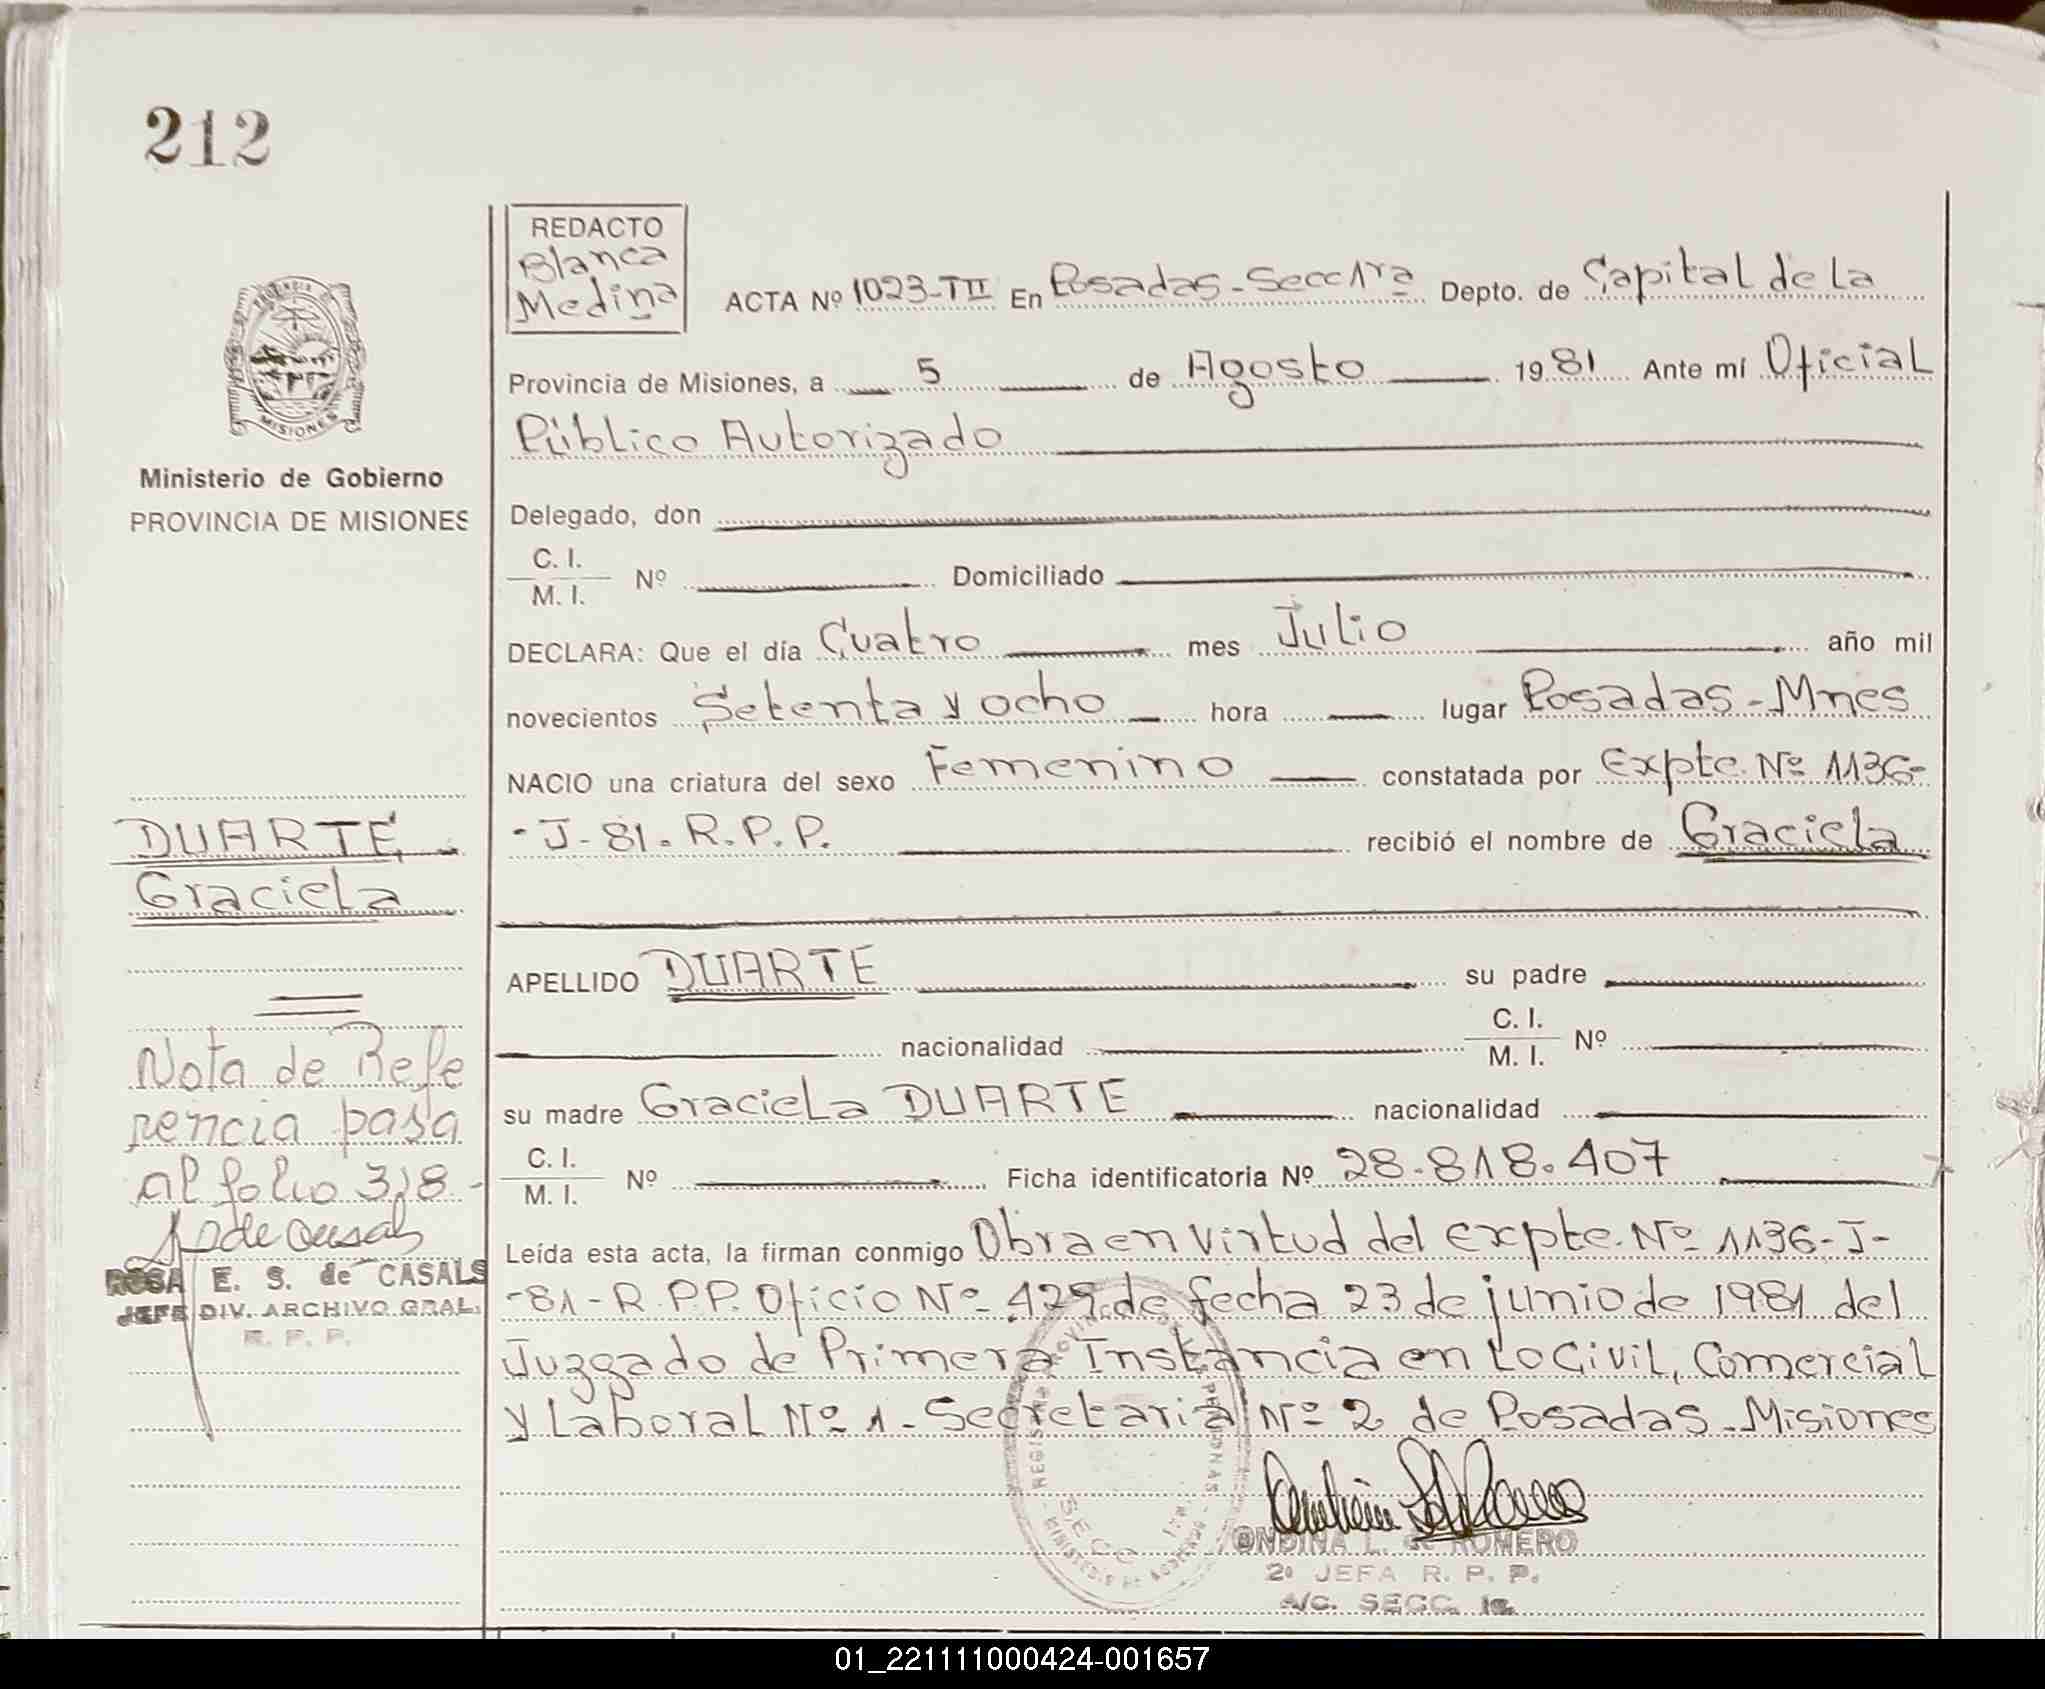 212
REDACTO
Blanca
Medina
ACTA Nº 1023-TII En Posadas-Secc 1ra Depto. de Capital de la
Provincia de Misiones, a 5 de Agosto 1981 Ante mí Oficial
Público Autorizado
MISIONES
Ministerio de Gobierno
PROVINCIA DE MISIONES
Delegado, don
C. I.
M. I. Nº Domiciliado
DECLARA: Que el día Cuatro mes Julio año mil
novecientos Setenta y ocho hora lugar Posadas-Mnes
NACIO una criatura del sexo Femenino constatada por Expte. Nº 1136-
-J-81. R.P.P. recibió el nombre de Graciela
DUARTE
Graciela
APELLIDO DUARTE su padre
nacionalidad C. I.
M. I. Nº
su madre Graciela DUARTE nacionalidad
C. I.
M. I. Nº Ficha identificatoria Nº 28.818.407
Nota de Refe
rencia pasa
al folio 318-
ROSA E. S. de CASALS
JEFE DIV. ARCHIVO GRAL.
R. P. P.
Leída esta acta, la firman conmigo Obra en virtud del expte. Nº 1136-J-
-81-R.P.P. Oficio Nº 429 de fecha 23 de junio de 1981 del
Juzgado de Primera Instancia en lo Civil, Comercial
y Laboral Nº 1-Secretaria Nº 2 de Posadas-Misiones
ONDINA L. de ROMERO
2º JEFA R. P. P.
A/C. SECC. 1a.
01_221111000424-001657